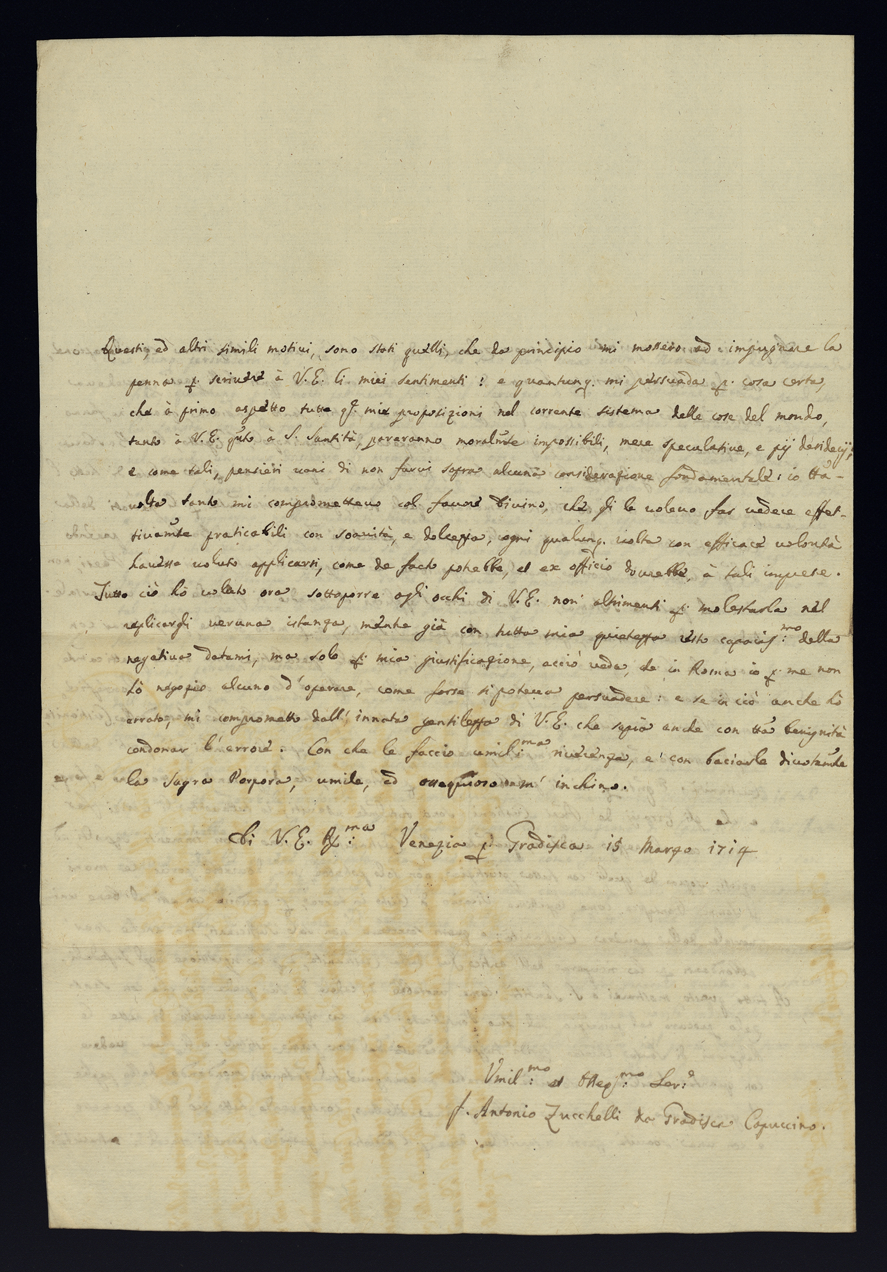 Questi, ed altri simili motivi, sono stati quelli, che da principio mi mossero ad impugnare la
penna p. scrivere à V.E. li miei sentimenti: e quantunq. mi persuada p. cosa certa,
che à primo aspetto tutte q.e mie proposizioni nel corrente sistema delle cose del mondo,
tanto à V.E. q.to à S. Santità, pareranno moralm.te impossibili, mere speculative, e pij desiderij,
e come tali, pensieri vani di non farvi sopra alcuna considerazione fondamentale: io tta-
volta tanto mi compromettevo col favore Divino, che gli le volevo far vedere effet-
tivam.te praticabili con soavità, e dolcezza, ogni qualunq. volta con efficace volontà
havesse voluto applicarsi, come de facto potrebbe, et ex officio dovrebbe, à tali imprese.
Tutto ciò hò voluto ora sottoporre agli occhi di V.E. non altrimenti p. molestarla nel
replicargli veruna istanza, mentre già con tutta mia quietezza resto capacis.mo della
negativa datami, ma solo p. mia giustificazione, acciò veda, che in Roma io p. me non
hò negozio alcuno d'operare, come forse si poteva persuadere: e se in ciò anche hò
errato, mi comprometto dall'innata gentilezza di V.E. che saprà anche con tta benignità
condonar l'errore. Con che le faccio umil.ma riverenza, e con baciarle divotam.te
la Sagra Porpora, umile, ed ossequioso m'inchino.
Di V.E. R.ma Venezia p. Gradisca 15 Marzo 1714
Umil.mo et Obleg.mo Ser.e
f. Antonio Zucchelli da Gradisca Capuccino.